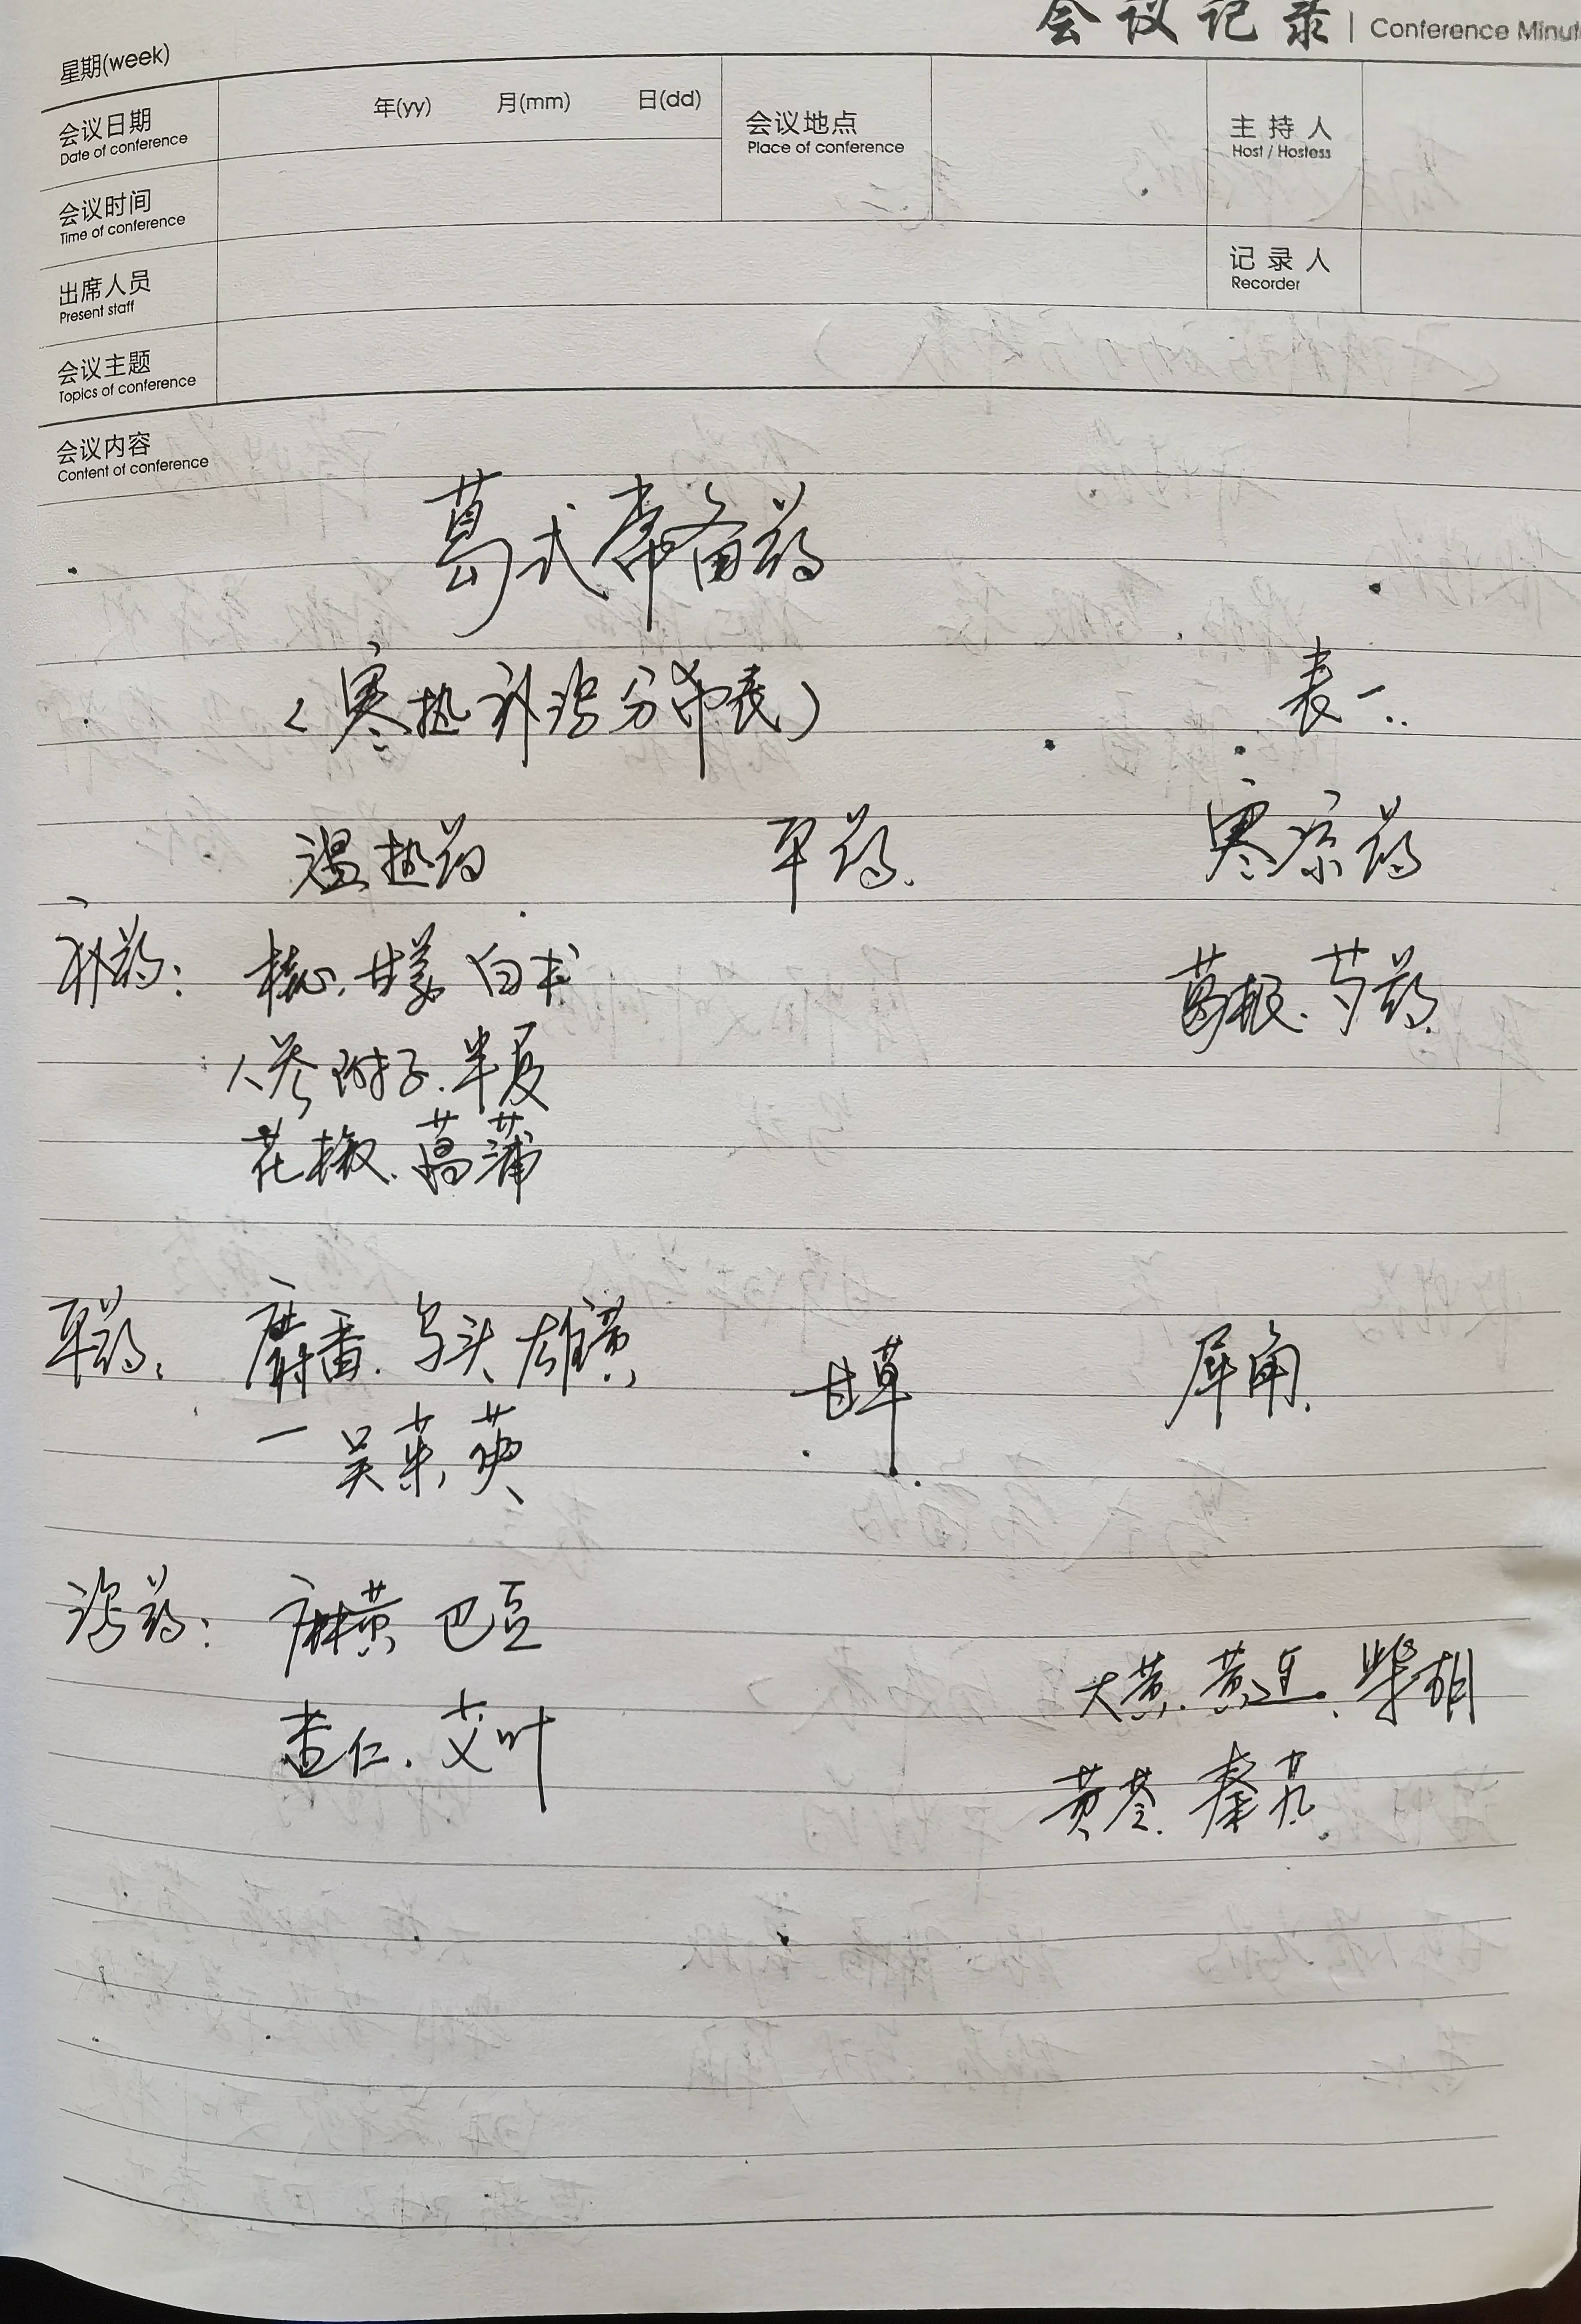 会议记录 | Conference Minut
星期(week)
会议日期 年(yy) 月(mm) 日(dd) 会议地点 主持人
Date of conference Place of conference Host / Hostess
会议时间
Time of conference
出席人员 记录人
Present staff Recorder
会议主题
Topics of conference
会议内容
Content of conference
葛式常备药
(寒热补泻分布表) 表一
温热药 平药 寒凉药
补药: 桂心、甘姜 白术 葛根、芍药
人参 附子、半夏
花椒、菖蒲
平药: 麝香、乌头 雄黄 甘草 犀角
一 吴茱萸
泻药: 麻黄 巴豆 大黄、黄连、柴胡
杏仁、艾叶 黄芩、秦艽